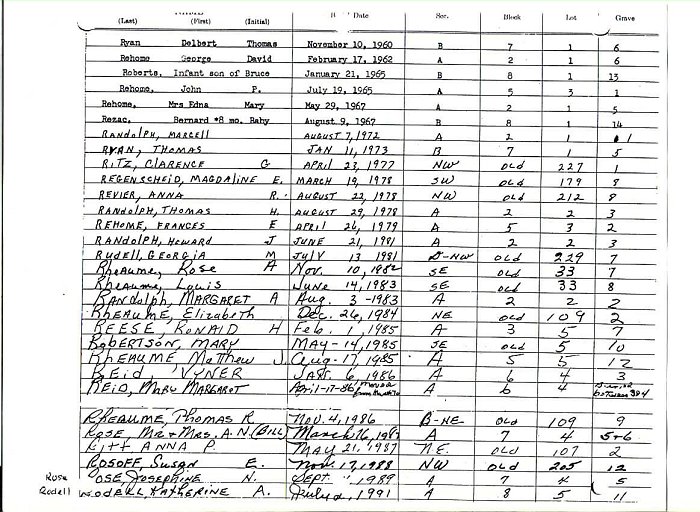 (Last) (First) (Initial) Date Sec. Block Lot Grave
Ryan Delbert Thomas November 10, 1960 B 7 1 6
Rehome George David February 17, 1962 A 2 1 6
Roberts, Infant son of Bruce January 21, 1965 B 8 1 13
Rehome, John P. July 19, 1965 A 5 3 1
Rehome, Mrs Edna Mary May 29, 1967 A 2 1 5
Rezac, Bernard *8 mo. Baby August 9, 1967 B 8 1 14
RANDOLPH, MARCELL AUGUST 7, 1972 A 2 1 1
RYAN, THOMAS JAN 11, 1973 B 7 1 5
RITZ, CLARENCE G APRIL 23, 1977 NW OLD 227 1
REGENSCHEID, MAGDALINE E. MARCH 19, 1978 SW OLD 179 8
REVIER, ANNA R. AUGUST 22, 1978 NW OLD 212 8
RANDOLPH, THOMAS H. AUGUST 29, 1978 A 2 2 3
REHOME, FRANCES E APRIL 26, 1979 A 5 3 2
RANDOLPH, HOWARD J JUNE 21, 1981 A 2 2 3
RUDELL, GEORGIA M JULY 13 1981 B-NW OLD 229 7
Rheaume, Rose A Nov. 10, 1982 SE OLD 33 7
Rheaume, Louis June 14, 1983 SE OLD 33 8
RANDOLPH, MARGARET A Aug. 3 -1983 A 2 2 2
RHEAUME, Elizabeth Dec. 26, 1984 NE OLD 109 2
REESE, RONALD H Feb. 1, 1985 A 3 5 7
ROBERTSON, MARY MAY-14, 1985 SE OLD 5 10
RHEAUME Matthew J. Aug-17, 1985 A 5 5 12
REID, VYNER JAN. 6, 1986 A 6 4 3
REID, MARY MARGAROT April-17-86 A 6 4 between 3&4
RHEAUME, THOMAS R Nov. 4, 1986 B-NE OLD 109 9
ROSE, MR + MRS. A.N (BILL) March 16, 1987 A 7 4 5+6
Kitt ANNA P. MAY 21, 1987 N.E. OLD 107 2
ROSOFF, SUSAN E. Nov. 17, 1988 NW OLD 205 12
Rose OSE, JOSEPHINE N. SEPT. 1989 A 7 4 5
Rodell KATHERINE A. 1991 A 8 5 11